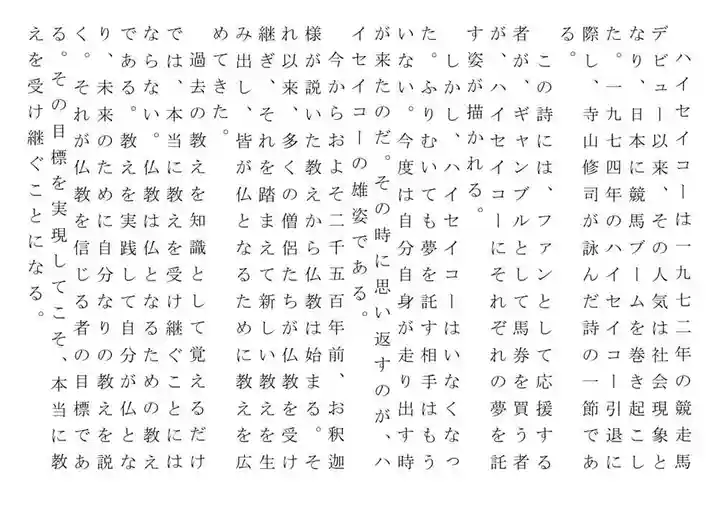 ハイセイコーは一九七二年の競走馬
デビュー以来、その人気は社会現象と
なり、日本に競馬ブームを巻き起こし
た。一九七四年のハイセイコー引退に
際し、寺山修司が詠んだ詩の一節であ
る。
　この詩には、ファンとして応援する
者が、ギャンブルとして馬券を買う者
が、ハイセイコーにそれぞれの夢を託
す姿が描かれる。
　しかし、ハイセイコーはいなくなっ
た。ふりむいても夢を託す相手はもう
いない。今度は自分自身が走り出す時
が来たのだ。その時に思い返すのが、ハ
イセイコーの雄姿である。
　今からおよそ二千五百年前、お釈迦
様が説いた教えから仏教は始まる。そ
れ以来、多くの僧侶たちが仏教を受け
継ぎ、それを踏まえて新しい教えを生
み出し、皆が仏となるために教えを広
めてきた。
　過去の教えを知識として覚えるだけ
では、本当に教えを受け継ぐことには
ならない。仏教は仏となるための教え
である。教えを実践して自分が仏とな
り、未来のために自分なりの教えを説
く。それが仏教を信じる者の目標であ
る。その目標を実現してこそ、本当に教
えを受け継ぐことになる。